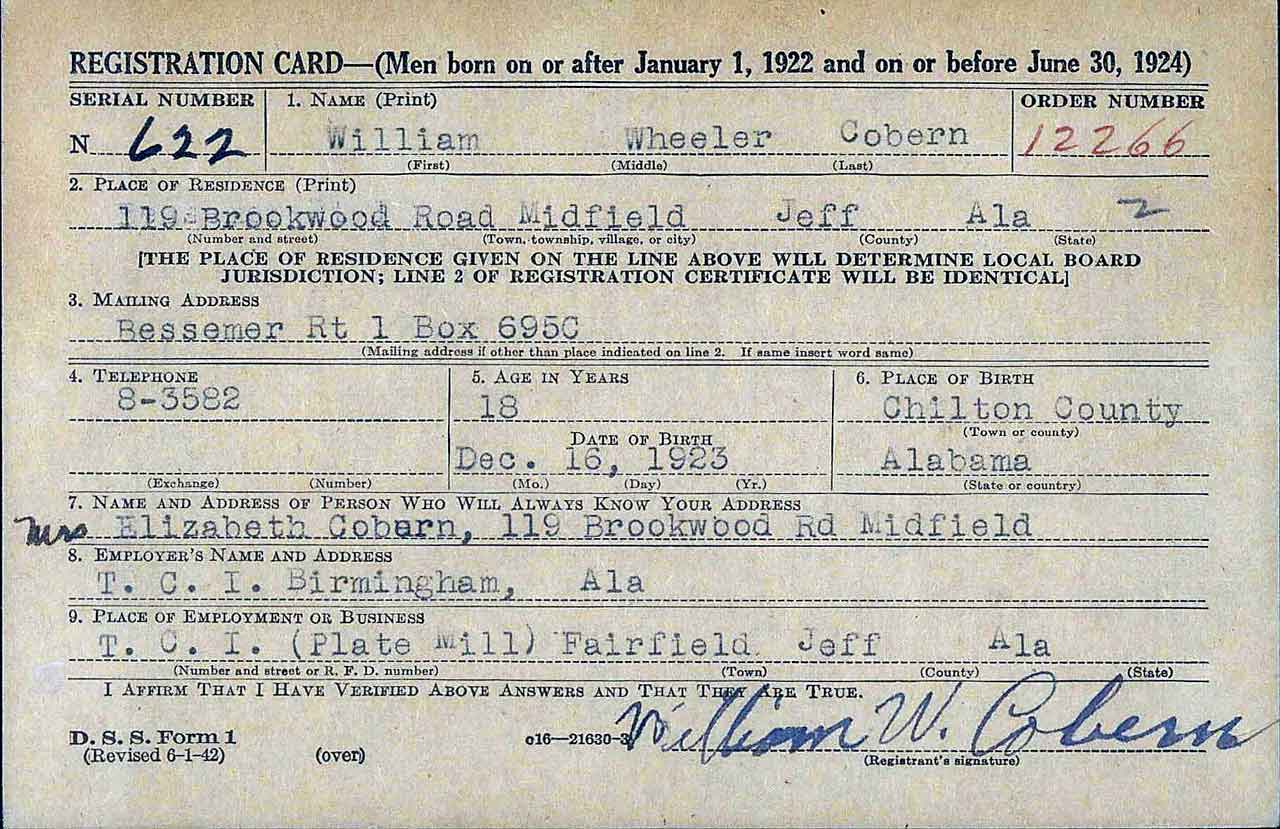 REGISTRATION CARD—(Men born on or after January 1, 1922 and on or before June 30, 1924)
SERIAL NUMBER 1. NAME (Print) ORDER NUMBER
N 622 William Wheeler Cobern 12266
(First) (Middle) (Last)
2. PLACE OF RESIDENCE (Print)
119 Brookwood Road Midfield Jeff Ala 2
(Number and street) (Town, township, village, or city) (County) (State)
[THE PLACE OF RESIDENCE GIVEN ON THE LINE ABOVE WILL DETERMINE LOCAL BOARD
JURISDICTION; LINE 2 OF REGISTRATION CERTIFICATE WILL BE IDENTICAL]
3. MAILING ADDRESS
Bessemer Rt 1 Box 695C
(Mailing address if other than place indicated on line 2. If same insert word same)
4. TELEPHONE 5. AGE IN YEARS 6. PLACE OF BIRTH
8-3582 18 Chilton County
(Town or county)
DATE OF BIRTH
Dec. 16, 1923 Alabama
(Exchange) (Number) (Mo.) (Day) (Yr.) (State or country)
7. NAME AND ADDRESS OF PERSON WHO WILL ALWAYS KNOW YOUR ADDRESS
Mrs Elizabeth Cobern, 119 Brookwood Rd Midfield
8. EMPLOYER'S NAME AND ADDRESS
T. C. I. Birmingham, Ala
9. PLACE OF EMPLOYMENT OR BUSINESS
T. C. I. (Plate Mill) Fairfield Jeff Ala
(Number and street or R. F. D. number) (Town) (County) (State)
I AFFIRM THAT I HAVE VERIFIED ABOVE ANSWERS AND THAT THEY ARE TRUE.
William W. Cobern
D. S. S. Form 1 (Revised 6-1-42) (over) c16—21630-3 (Registrant's signature)